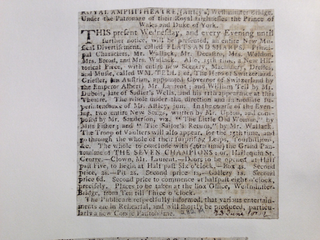 ROYAL AMPHITHEATRE, (Astley's) Westminster Bridge,
Under the Patronage of their Royal Highnesses the Prince of
Wales and Duke of York.
THIS present Wednesday, and every Evening until
further notice, will be presented, an entire New Mu-
sical Divertisement, called FLATS AND SHARPS. Prin-
cipal Characters, Mr. Wallack, Mr. Decastro, Mr. Waldron,
Mrs. Broad, and Mrs. Wallack. Also, 15th time, a New His-
torical Piece, with entire new Scenery, Machinery, Dresses,
and Music, called WM. TELL; or, The Hero of Switzerland.
Griesler, an Austrian, appointed Governor of Switzerland by
the Emperor Albert; Mr. Lassent; and William Tell by Mr.
Dubois, late of Sadler's Wells, and his appearance at this
Theatre. The whole under the direction and
of Mr. Astley, jun. In the course of the Even-
ing, two entire New Songs, written by Mr. Upton, and com-
posed by Mr. Sanderson, viz. "The little Old Woman," by
Miss Fisher; and "The Sailor's Return," by Mr. Wallack.
The Troop of Vaulters will also appear, for the time,
through the whole of their
&c. The whole to conclude with (
tomime of THE SEVEN CHAMPIONS; or, Half-an-
Crutty.—Clown, Mr. Laurent. Doors to be opened at Half
past Five, to begin at Half past Six o'clock. Box 4s. Second
price, 2s.—Pit 2s. Second price 1s.—Gallery 1s. Second
price 6d. Second price to commence at half-past eight o'clock,
precisely. Places to be taken at the Box Office, Westminster-
Bridge, from Ten till Three o'clock.
The Public are respectfully informed, that various entertain-
ments are in Rehearsal, and will shortly be produced, particu-
larly a new Comic Pantomime.